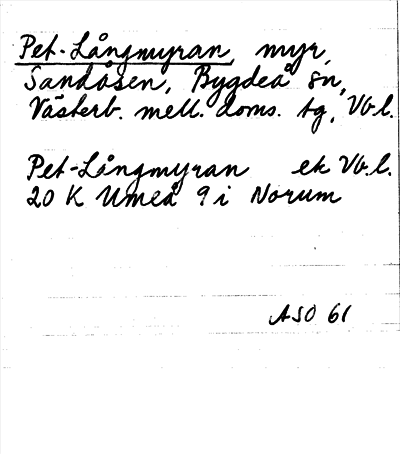 Pet-Långmyran, myr,
Sandåsen, Bygdeå sn,
Västerb. mell. doms. tg, Vb.l.
Pet-Långmyran ek Vb.l.
20 K Umeå 9 i Norum
ASO 61